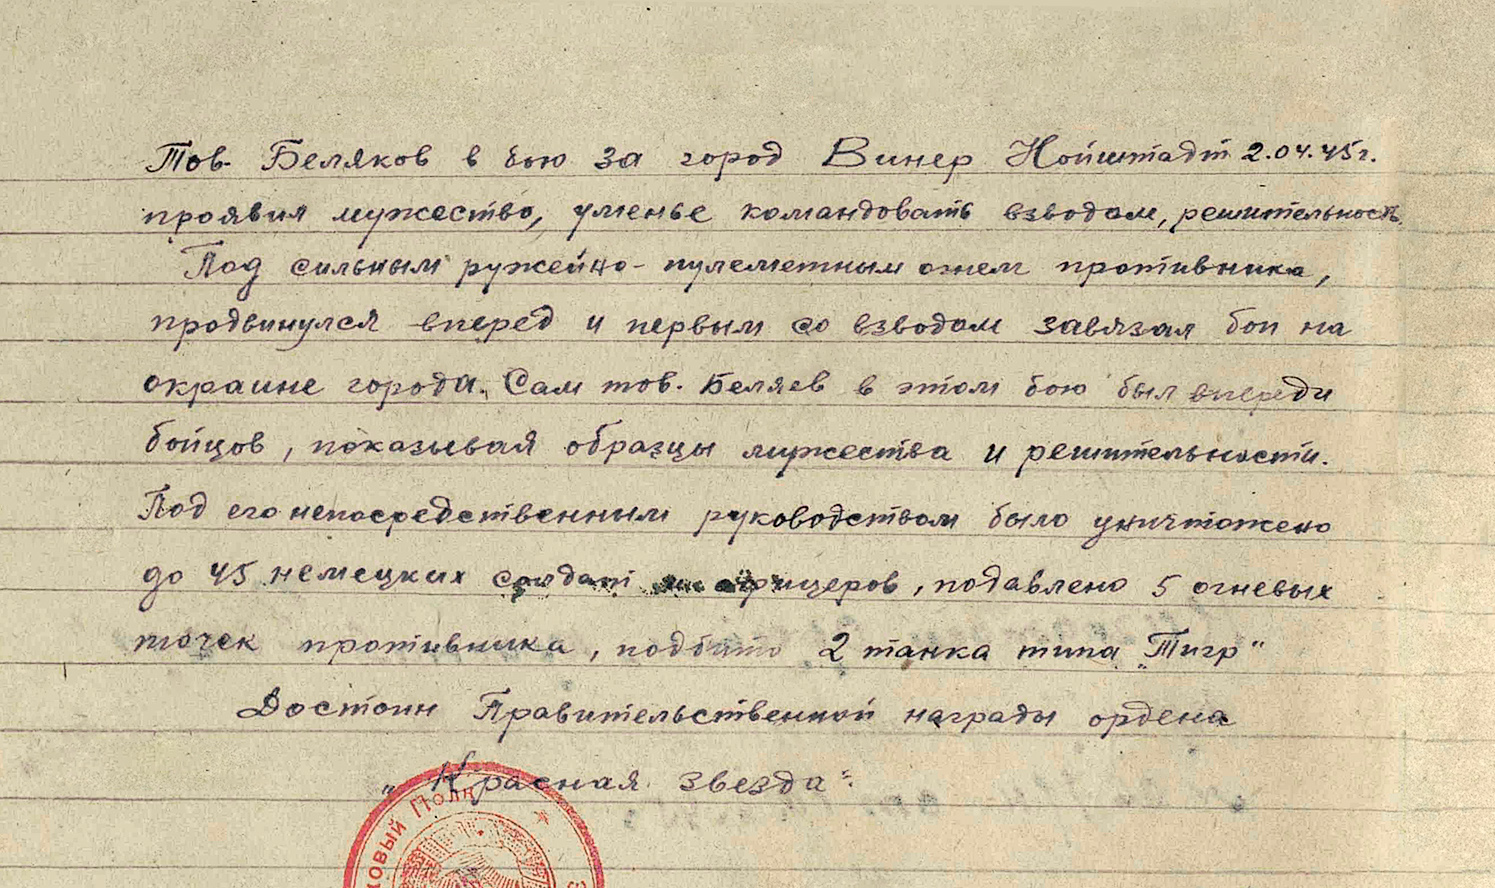 Тов. Беляков в бою за город Винер Нойштадт 2.04.45г.
проявил мужество, уменье командовать взводом, решительность.
Под сильным ружейно-пулеметным огнем противника,
продвинулся вперед и первым со взводом завязал бои на
окраине города. Сам тов. Беляев в этом бою был впереди
бойцов, показывая образцы мужества и решительности.
Под его непосредственным руководством было уничтожено
до 45 немецких солдат и офицеров, подавлено 5 огневых
точек противника, подбито 2 танка типа „Тигр"
Достоин Правительственной награды ордена
„Красная звезда"
ковый Полк